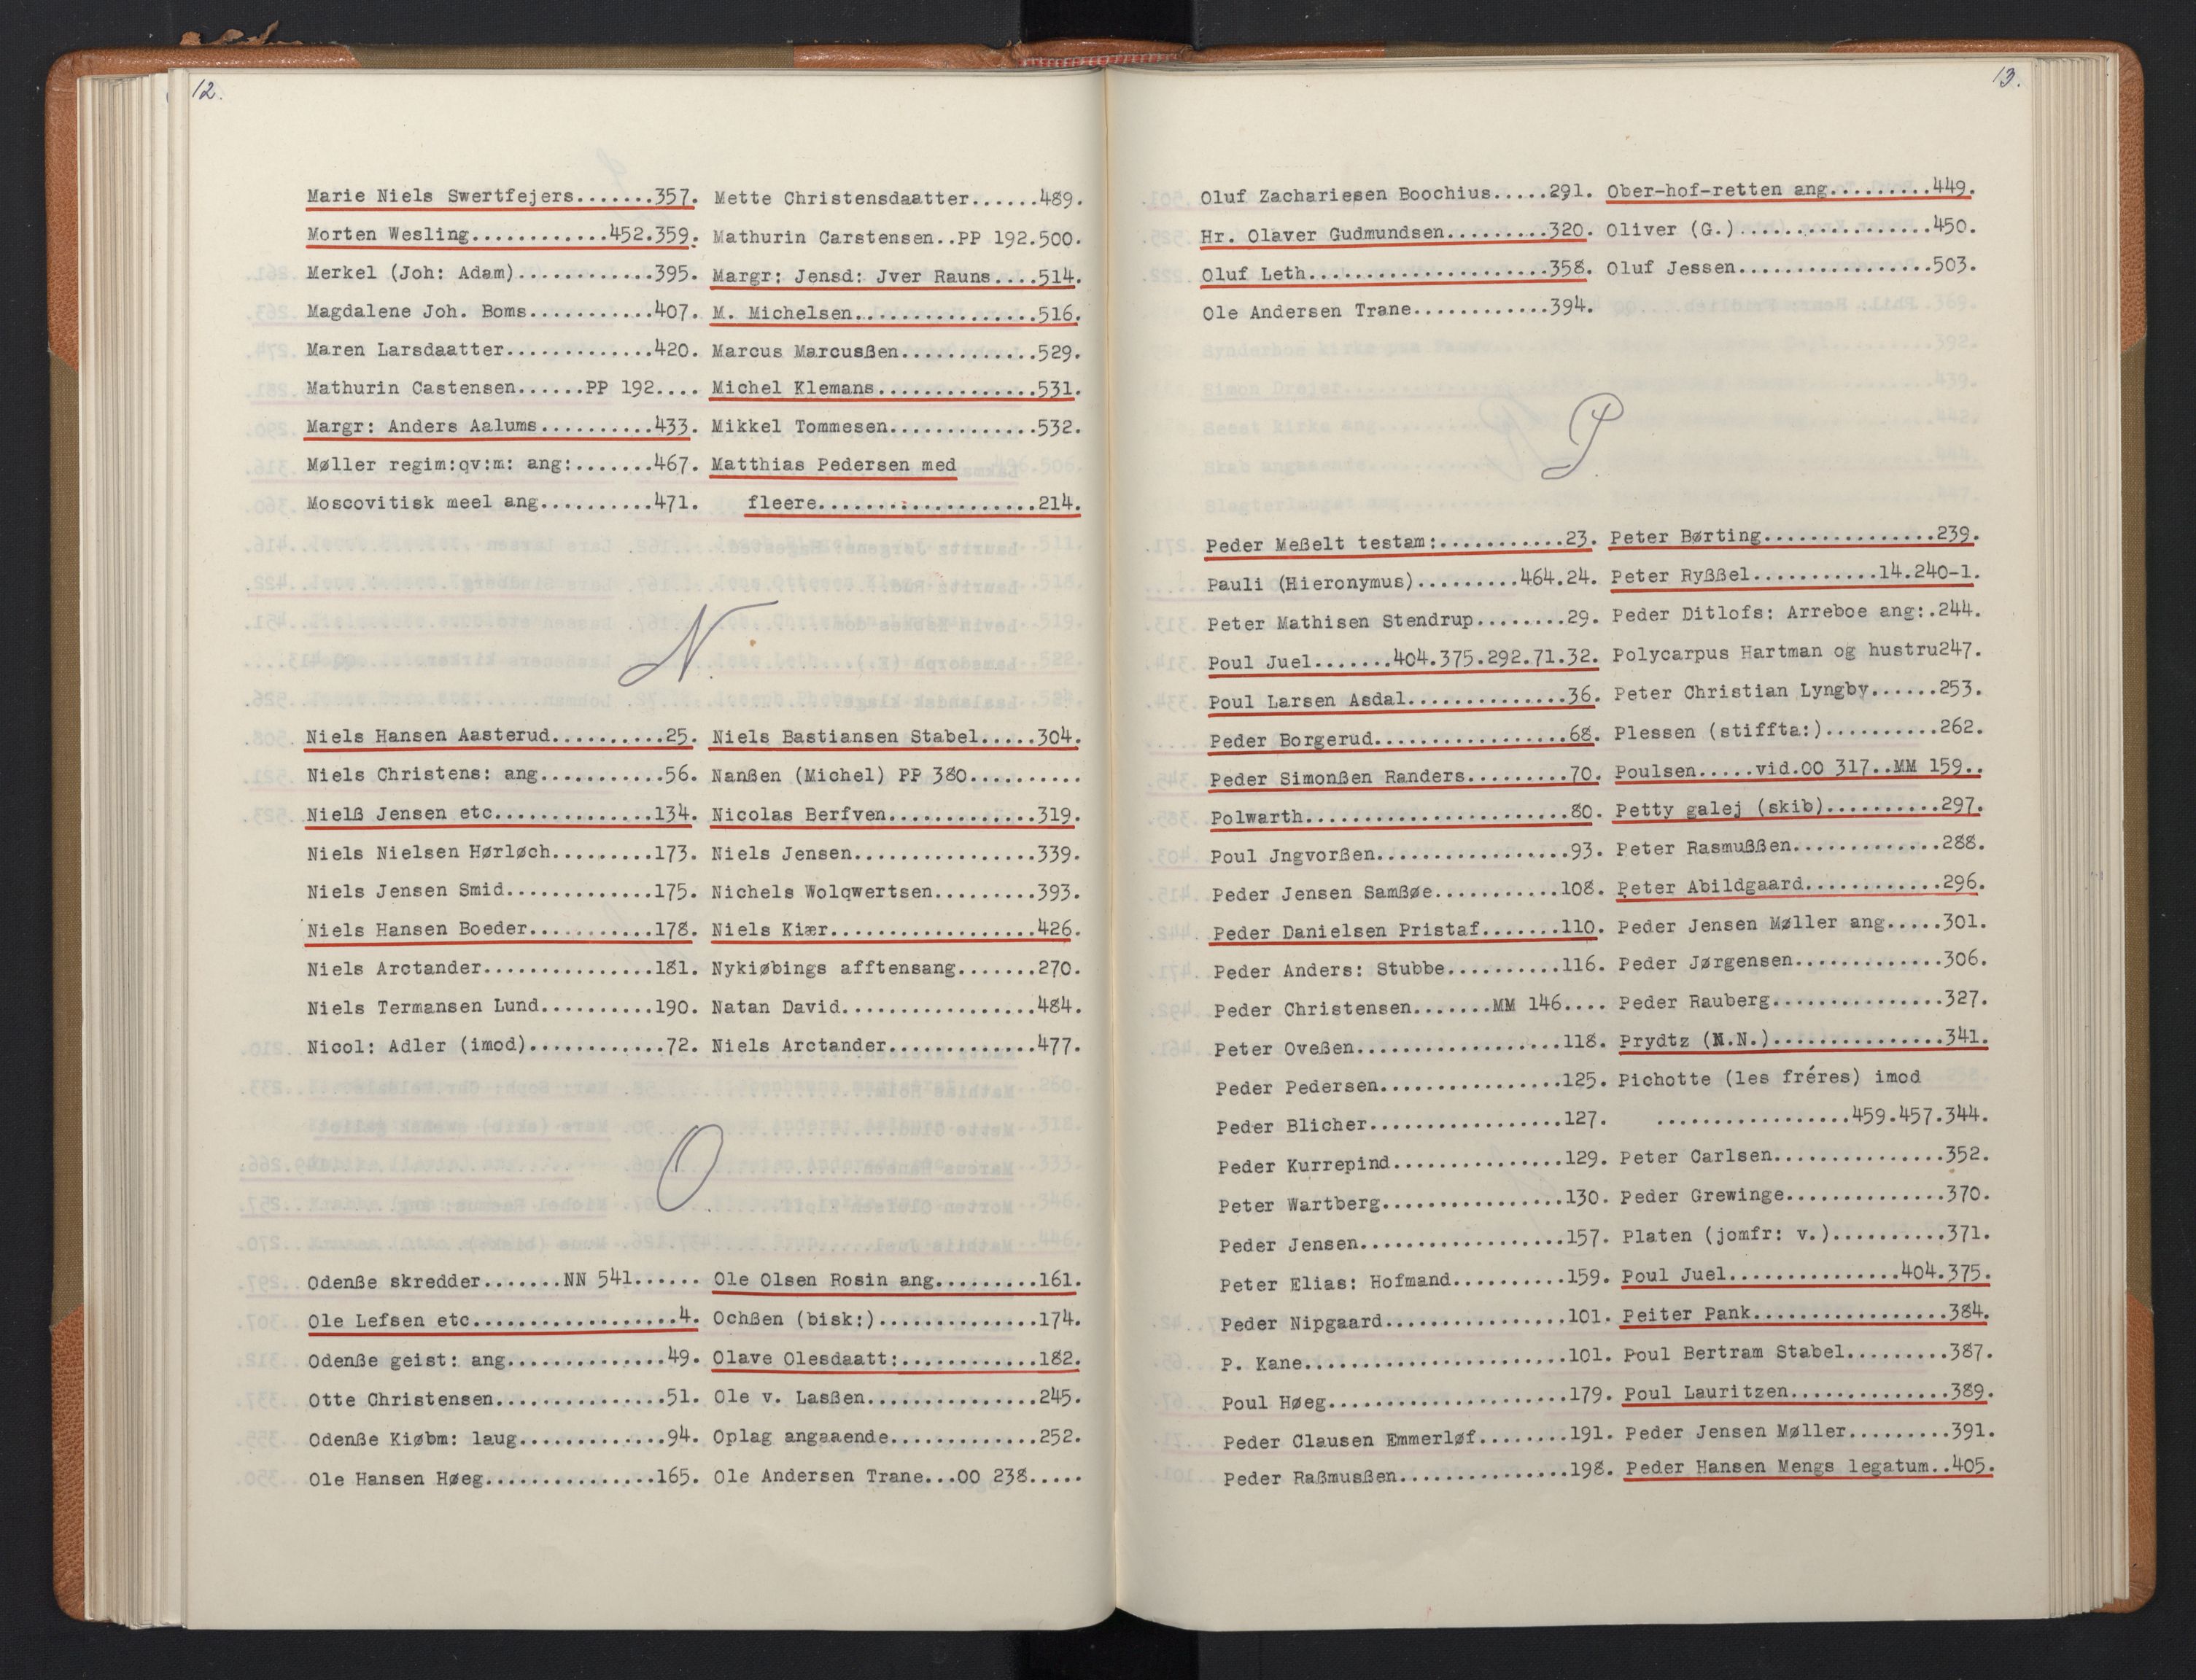 12.
Marie Niels Swertfejers.......357.
Morten Wesling............452.359.
Merkel (Joh: Adam)............395.
Magdalene Joh. Boms...........407.
Maren Larsdaatter.............420.
Mathurin Castensen......PP 192....
Margr: Anders Aalums..........433.
Møller regim:qv:m: ang:.......467.
Moscovitisk meel ang..........471.
Mette Christensdaatter......489.
Mathurin Carstensen..PP 192.500.
Margr: Jensd: Jver Rauns....514.
M. Michelsen................516.
Marcus Marcusßen............529.
Michel Klemans..............531.
Mikkel Tommesen.............532.
Matthias Pedersen med
fleere...................214.
N.
Niels Hansen Aasterud..........25.
Niels Christens: ang...........56.
Nielß Jensen etc..............134.
Niels Nielsen Hørløch.........173.
Niels Jensen Smid.............175.
Niels Hansen Boeder...........178.
Niels Arctander...............181.
Niels Termansen Lund..........190.
Nicol: Adler (imod)............72.
Niels Bastiansen Stabel.....304.
Nanßen (Michel) PP 380..........
Nicolas Berfven.............319.
Niels Jensen................339.
Nichels Wolqwertsen.........393.
Niels Kiær..................426.
Nykiøbings afftensang.......270.
Natan David.................484.
Niels Arctander.............477.
O.
Odenße skredder.......NN 541......
Ole Lefsen etc..................4.
Odenße geist: ang..............49.
Otte Christensen...............51.
Odenße Kiøbm: laug.............94.
Ole Hansen Høeg...............165.
Ole Olsen Rosin ang.........161.
Ochßen (bisk:)..............174.
Olave Olesdaatt:............182.
Ole v. Laßen...............245.
Oplag angaaende.............252.
Ole Andersen Trane...OO 238.....
13.
Oluf Zachariesen Boochius.....291.
Hr. Olaver Gudmundsen.........320.
Oluf Leth.....................358.
Ole Andersen Trane............394.
Ober-hof-retten ang.........449.
Oliver (G.).................450.
Oluf Jessen.................503.
P
Peder Meßelt testam:...........23.
Pauli (Hieronymus).........464.24.
Peter Mathisen Stendrup........29.
Poul Juel.......404.375.292.71.32.
Poul Larsen Asdal..............36.
Peder Borgerud.................68.
Peder Simonßen Randers.........70.
Polwarth.......................80.
Poul Jngvorßen.................93.
Peder Jensen Samßøe...........108.
Peder Danielsen Pristaf.......110.
Peder Anders: Stubbe..........116.
Peder Christensen.......MM 146....
Peter Oveßen..................118.
Peder Pedersen................125.
Peder Blicher.................127.
Peder Kurrepind...............129.
Peter Wartberg................130.
Peder Jensen..................157.
Peter Elias: Hofmand..........159.
Peder Nipgaard................101.
P. Kane.......................101.
Poul Høeg.....................179.
Peder Clausen Emmerløf........191.
Peder Raßmusßen...............198.
Peter Børting...............239.
Peter Ryßßel...........14.240-1.
Peder Ditlofs: Arreboe ang:.244.
Polycarpus Hartman og hustru247.
Peter Christian Lyngby......253.
Plessen (stiffta:)..........262.
Poulsen.....vid.OO 317..MM 159..
Petty galej (skib)..........297.
Peter Rasmußßen.............288.
Peter Abildgaard............296.
Peder Jensen Møller ang.....301.
Peder Jørgensen.............306.
Peder Rauberg...............327.
Prydtz (N.N.)...............341.
Pichotte (les fréres) imod
.................459.457.344.
Peter Carlsen...............352.
Peder Grewinge..............370.
Platen (jomfr: v.)..........371.
Poul Juel...............404.375.
Peiter Pank.................384.
Poul Bertram Stabel.........387.
Poul Lauritzen..............389.
Peder Jensen Møller.........391.
Peder Hansen Mengs legatum..405.